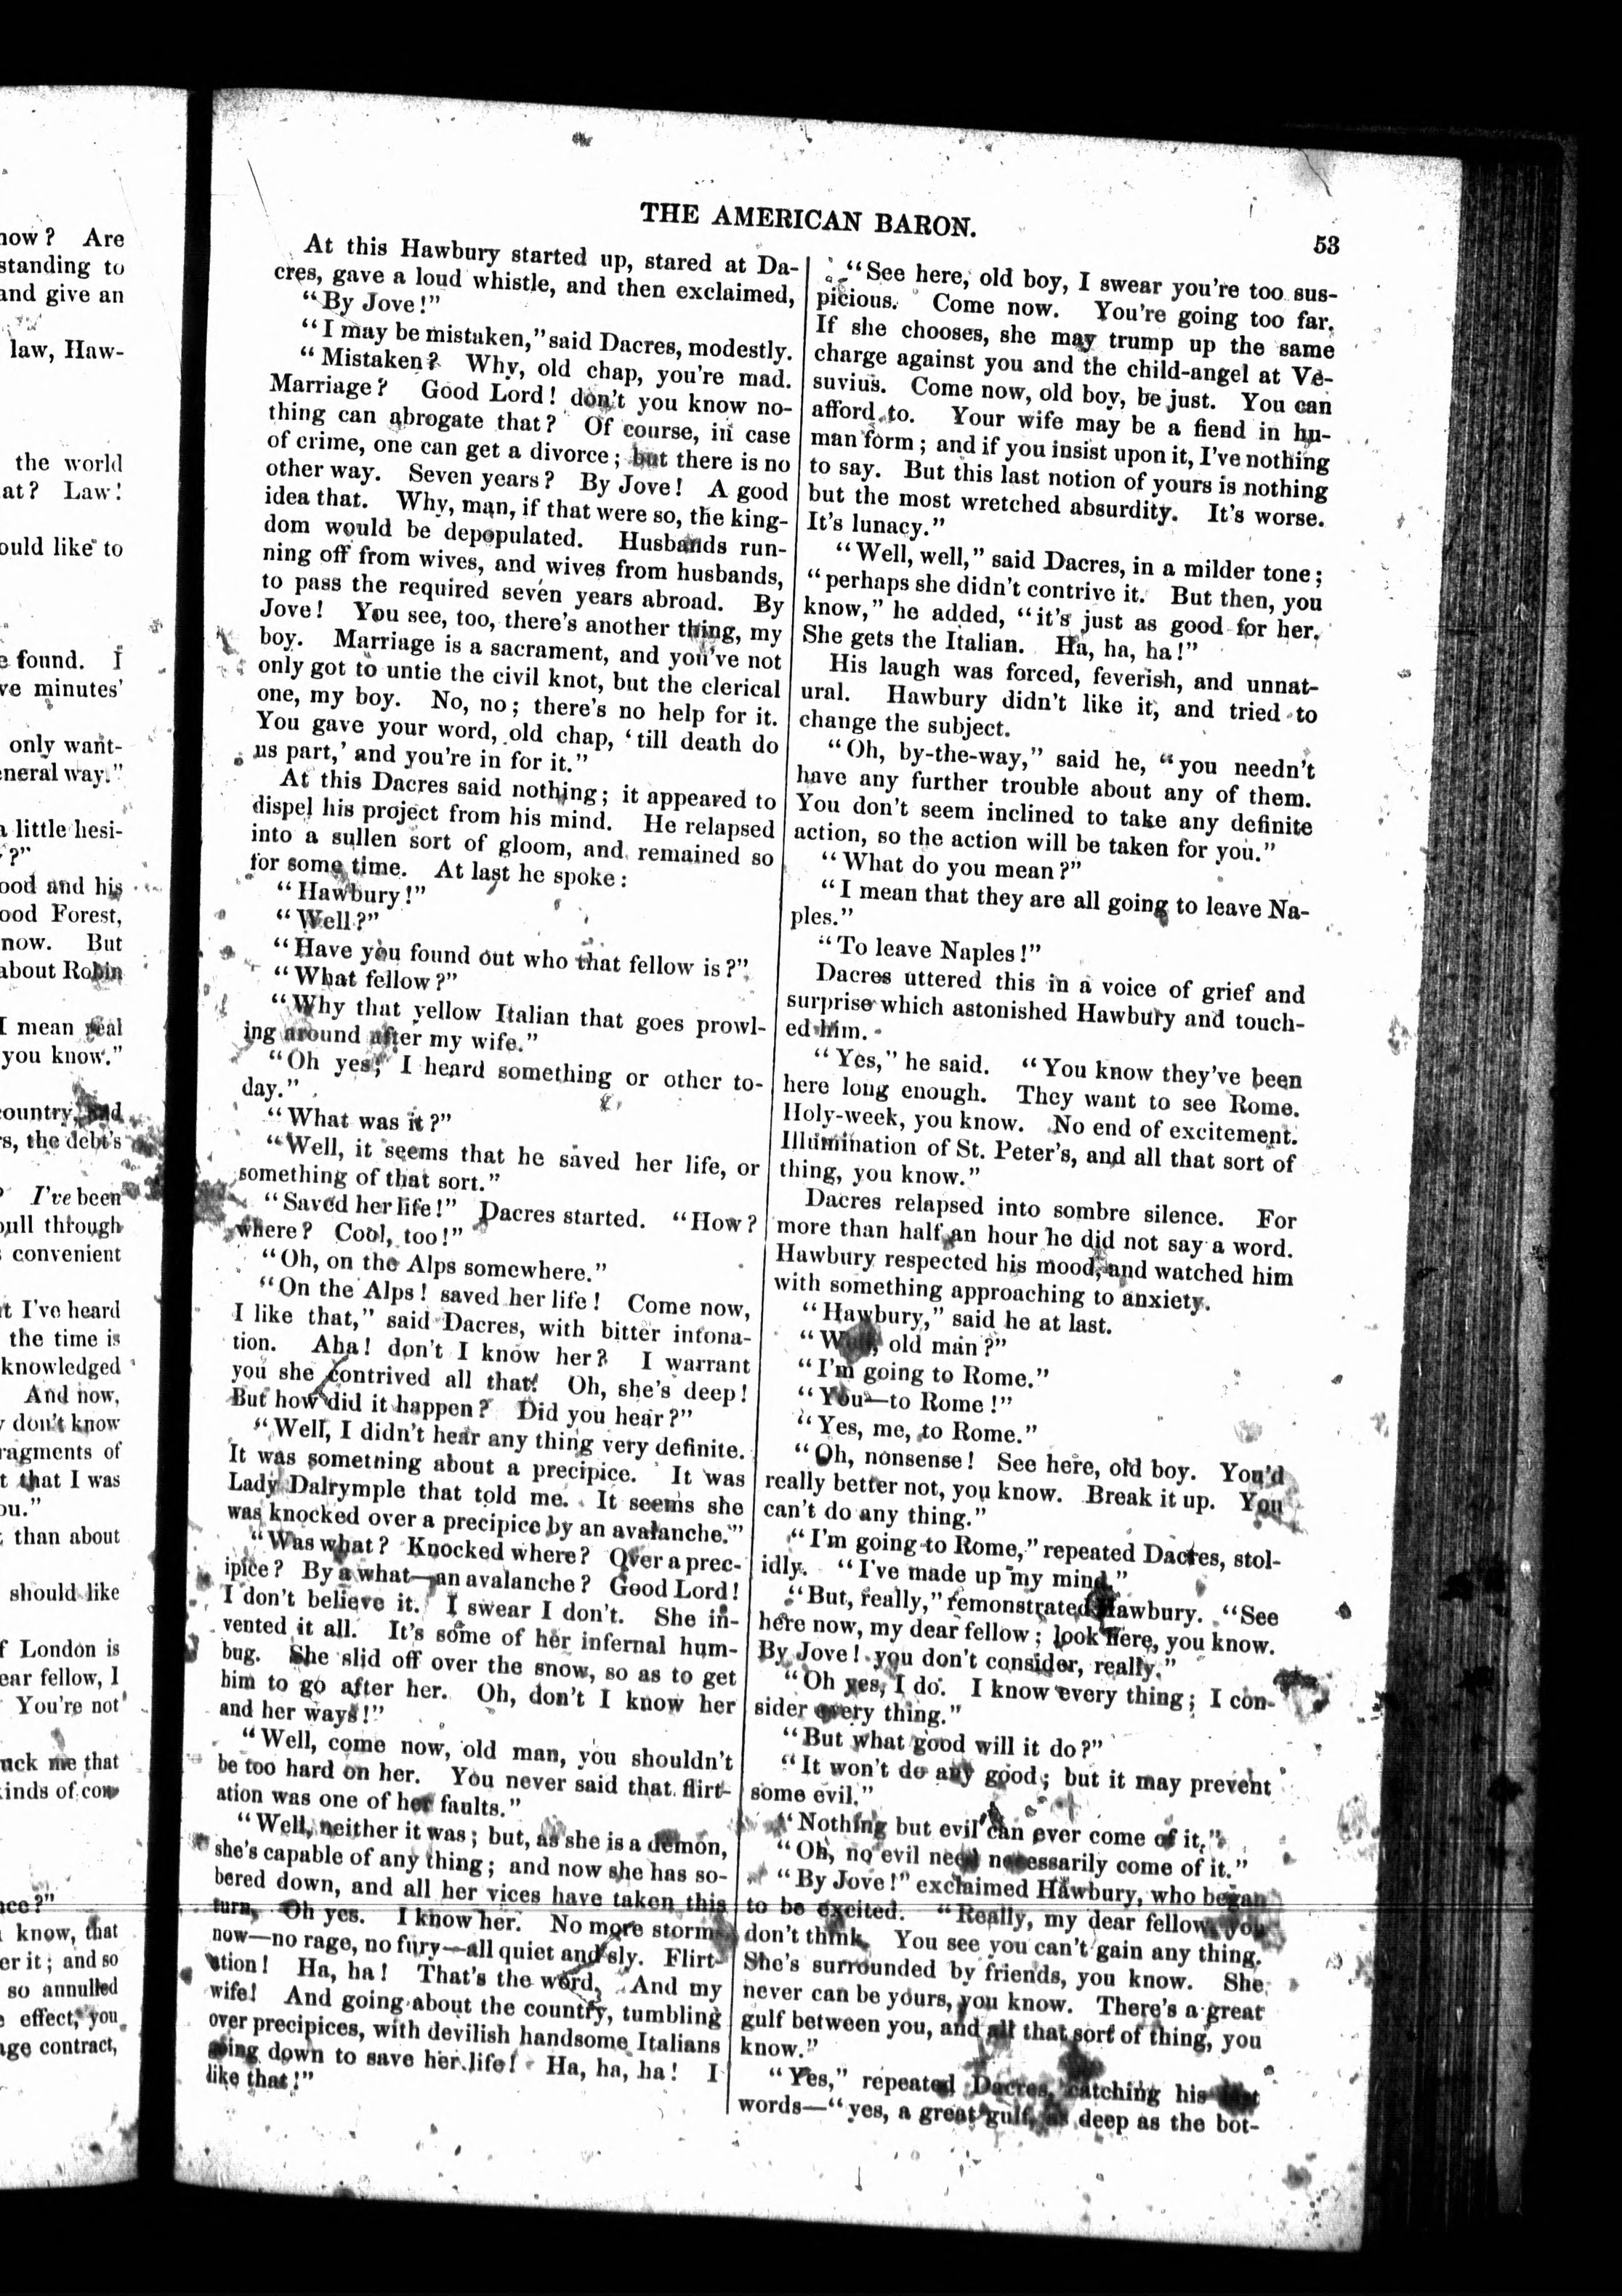 now? Are
standing to
and give an
law, Haw-
the world
at? Law!
ould like to
e found. I
ve minutes'
only want-
eneral way."
a little hesi-
?"
ood and his
ood Forest,
now. But
about Robin
I mean real
you know."
country,
s, the debt's
I've been
pull through
convenient
t I've heard
the time is
knowledged
And now,
don't know
ragments of
t that I was
ou."
than about
should like
f London is
ear fellow, I
You're not
uck me that
kinds of con-
nce?"
know, that
er it; and so
so annulled
e effect, you
age contract,
THE AMERICAN BARON.
53
At this Hawbury started up, stared at Da-
cres, gave a loud whistle, and then exclaimed,
"By Jove!"
"I may be mistaken," said Dacres, modestly.
"Mistaken? Why, old chap, you're mad.
Marriage? Good Lord! don't you know no-
thing can abrogate that? Of course, in case
of crime, one can get a divorce; but there is no
other way. Seven years? By Jove! A good
idea that. Why, man, if that were so, the king-
dom would be depopulated. Husbands run-
ning off from wives, and wives from husbands,
to pass the required seven years abroad. By
Jove! You see, too, there's another thing, my
boy. Marriage is a sacrament, and you've not
only got to untie the civil knot, but the clerical
one, my boy. No, no; there's no help for it.
You gave your word, old chap, 'till death do
us part,' and you're in for it."
At this Dacres said nothing; it appeared to
dispel his project from his mind. He relapsed
into a sullen sort of gloom, and remained so
for some time. At last he spoke:
"Hawbury!"
"Well?"
"Have you found out who that fellow is?"
"What fellow?"
"Why that yellow Italian that goes prowl-
ing around after my wife."
"Oh yes; I heard something or other to-
day."
"What was it?"
"Well, it seems that he saved her life, or
something of that sort."
"Saved her life!" Dacres started. "How?
where? Cool, too!"
"Oh, on the Alps somewhere."
"On the Alps! saved her life! Come now,
I like that," said Dacres, with bitter intona-
tion. Aha! don't I know her? I warrant
you she contrived all that! Oh, she's deep!
But how did it happen? Did you hear?"
"Well, I didn't hear any thing very definite.
It was something about a precipice. It was
Lady Dalrymple that told me. It seems she
was knocked over a precipice by an avalanche."
"Was what? Knocked where? Over a prec-
ipice? By a what—an avalanche? Good Lord!
I don't believe it. I swear I don't. She in-
vented it all. It's some of her infernal hum-
bug. She slid off over the snow, so as to get
him to go after her. Oh, don't I know her
and her ways!"
"Well, come now, old man, you shouldn't
be too hard on her. You never said that flirt-
ation was one of her faults."
"Well, neither it was; but, as she is a demon,
she's capable of any thing; and now she has so-
bered down, and all her vices have taken this
turn. Oh yes. I know her. No more storms
now—no rage, no fury—all quiet and sly. Flirt-
ation! Ha, ha! That's the word. And my
wife! And going about the country, tumbling
over precipices, with devilish handsome Italians
going down to save her life! Ha, ha, ha! I
like that!"
"See here, old boy, I swear you're too sus-
picious. Come now. You're going too far.
If she chooses, she may trump up the same
charge against you and the child-angel at Ve-
suvius. Come now, old boy, be just. You can
afford to. Your wife may be a fiend in hu-
man form; and if you insist upon it, I've nothing
to say. But this last notion of yours is nothing
but the most wretched absurdity. It's worse.
It's lunacy."
"Well, well," said Dacres, in a milder tone;
"perhaps she didn't contrive it. But then, you
know," he added, "it's just as good for her.
She gets the Italian. Ha, ha, ha!"
His laugh was forced, feverish, and unnat-
ural. Hawbury didn't like it, and tried to
change the subject.
"Oh, by-the-way," said he, "you needn't
have any further trouble about any of them.
You don't seem inclined to take any definite
action, so the action will be taken for you."
"What do you mean?"
"I mean that they are all going to leave Na-
ples."
"To leave Naples!"
Dacres uttered this in a voice of grief and
surprise which astonished Hawbury and touch-
ed him.
"Yes," he said. "You know they've been
here long enough. They want to see Rome.
Holy-week, you know. No end of excitement.
Illumination of St. Peter's, and all that sort of
thing, you know."
Dacres relapsed into sombre silence. For
more than half an hour he did not say a word.
Hawbury respected his mood, and watched him
with something approaching to anxiety.
"Hawbury," said he at last.
"Well, old man?"
"I'm going to Rome."
"You—to Rome!"
"Yes, me, to Rome."
"Oh, nonsense! See here, old boy. You'd
really better not, you know. Break it up. You
can't do any thing."
"I'm going to Rome," repeated Dacres, stol-
idly. "I've made up my mind."
"But, really," remonstrated Hawbury. "See
here now, my dear fellow; look here, you know.
By Jove! you don't consider, really."
"Oh yes, I do. I know every thing; I con-
sider every thing."
"But what good will it do?"
"It won't do any good; but it may prevent
some evil."
"Nothing but evil can ever come of it."
"Oh, no evil need necessarily come of it."
"By Jove!" exclaimed Hawbury, who began
to be excited. "Really, my dear fellow, you
don't think. You see you can't gain any thing.
She's surrounded by friends, you know. She
never can be yours, you know. There's a great
gulf between you, and all that sort of thing, you
know."
"Yes," repeated Dacres, catching his last
words—"yes, a great gulf, as deep as the bot-